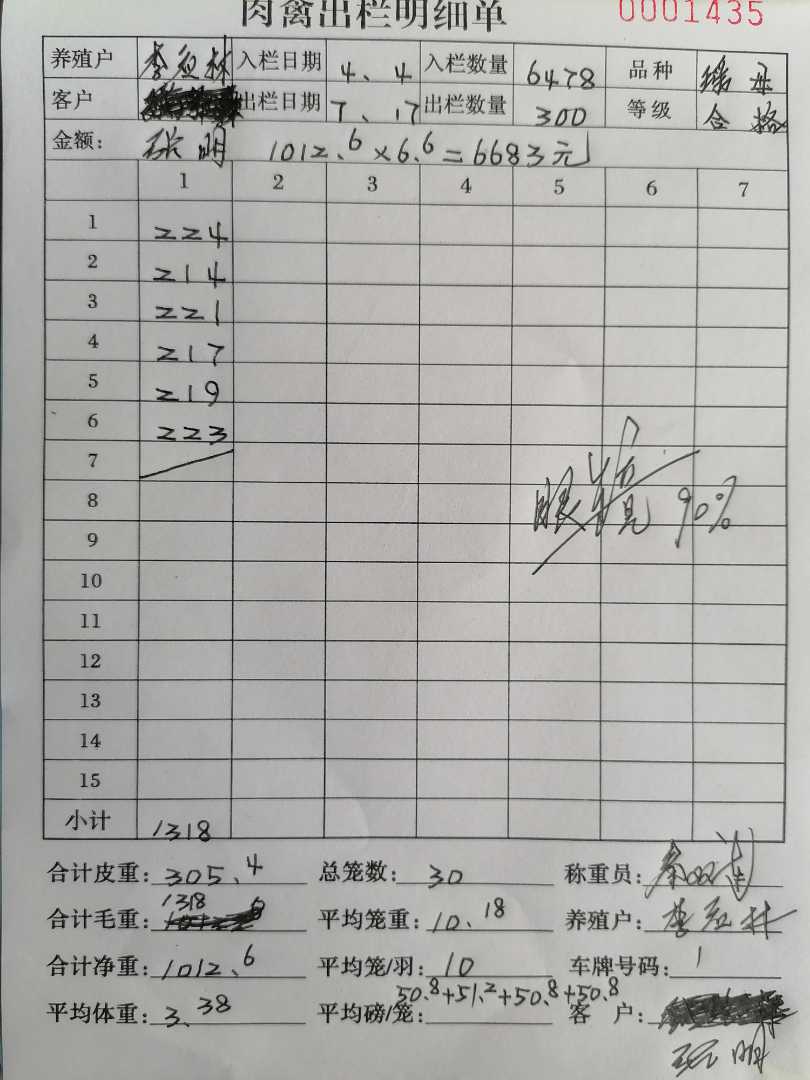 肉禽出栏明细单 0001435
养殖户 李 林 入栏日期 4、4 入栏数量 6478 品种 瑶
客户 出栏日期 7、17 出栏数量 300 等级 合格
金额: 张明 1012.6×6.6=6683元
1 2 3 4 5 6 7
1 224
2 214
3 221
4 217
5 219
6 223
7
8
眼 90%
9
10
11
12
13
14
15
小计 1318
合计皮重: 305.4 总笼数: 30 称重员:
1318
合计毛重: 平均笼重: 10.18 养殖户: 李 林
合计净重: 1012.6 平均笼/羽: 10 车牌号码: 1
50.8+51.2+50.8+50.8
平均体重: 3.38 平均磅/笼: 客 户:
张明